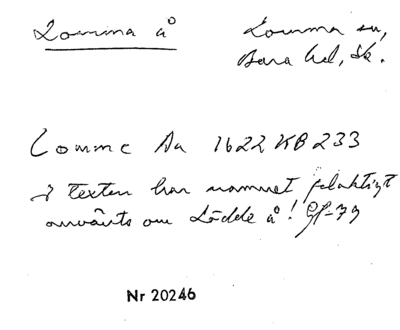 Lomma å
Lomma sn,
Bara hd, Sk.
Comme Aa 1622 KB 233
I texten har namnet felaktigt
använts om Lödde å! Gf-79
Nr 20246